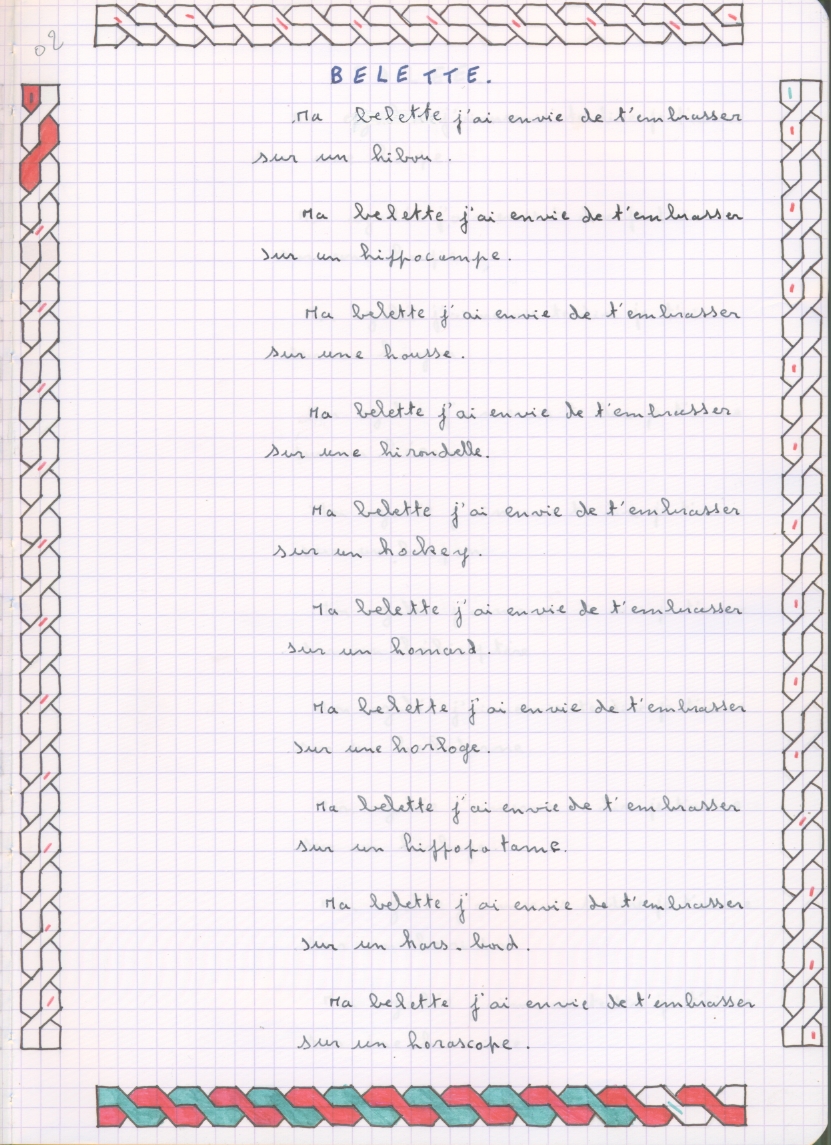 02
BELETTE.
Ma belette j'ai envie de t'embrasser
sur un hibou.
Ma belette j'ai envie de t'embrasser
sur un hippocampe.
Ma belette j'ai envie de t'embrasser
sur une housse.
Ma belette j'ai envie de t'embrasser
sur une hirondelle.
Ma belette j'ai envie de t'embrasser
sur un hockey.
Ma belette j'ai envie de t'embrasser
sur un homard.
Ma belette j'ai envie de t'embrasser
sur une horloge.
Ma belette j'ai envie de t'embrasser
sur un hippopotame.
Ma belette j'ai envie de t'embrasser
sur un hors-bord.
Ma belette j'ai envie de t'embrasser
sur un horoscope.